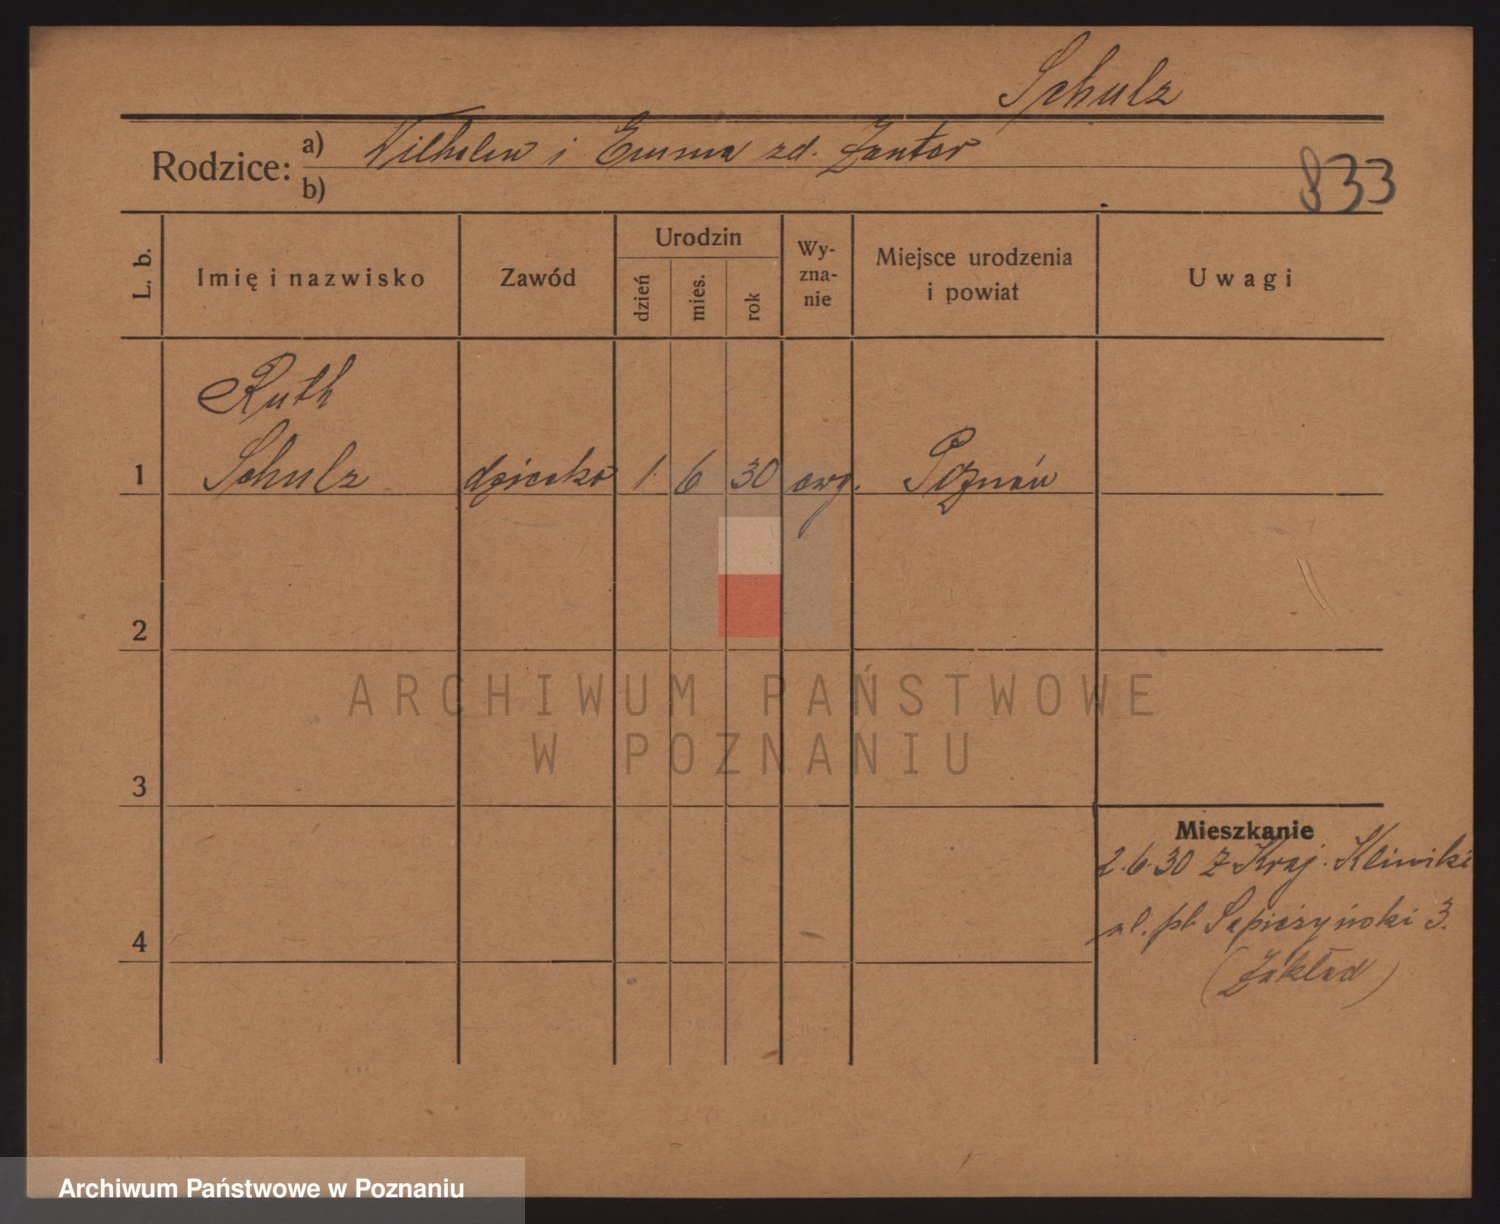 Schulz
Rodzice: a) Wilhelm i Emma zd. Zantor
b)
833
L. b.
Imię i nazwisko
Zawód
Urodzin
dzień
mies.
rok
Wy-
zna-
nie
Miejsce urodzenia
i powiat
Uwagi
Ruth
1 Schulz dziecko 1. 6 30 ewg. Poznań
2
3
4
Mieszkanie
2.6.30 z Kraj. Kliniki
ul. pl. Sapieżyński 3.
(Zakład)
ARCHIWUM PAŃSTWOWE
W POZNANIU
Archiwum Państwowe w Poznaniu